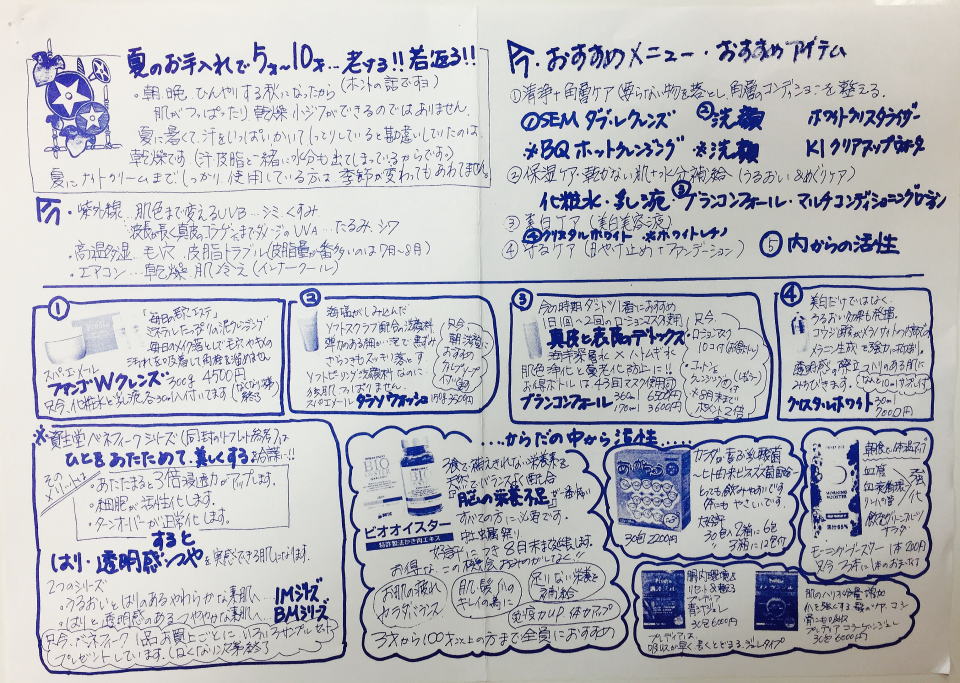 夏のお手入れで5才~10才…老ける!!若返る!!
・朝晩ひんやりする秋になったから(ホントの話ですョ)
肌がつっぱったり乾燥小ジワができるのではありません。
夏に暑くて、汗をいっぱいかいてしっとりしていると勘違いしていたのは、
乾燥です(汗皮脂と一緒に水分も出てしまっているからです。)
夏にナイトクリームまでしっかり使用している方は季節が変わってもあわてません。
今・おすすめメニュー・おすすめアイテム
①清浄+角層ケア(要らない物を落とし、角層のコンディションを整える。
①SEMダブルクレンズ ②洗顔 ホワイトクリスタライザー
※BQホットクレンジング ※洗顔 K1クリアアップウォータ
②保湿ケア・乾かない肌+水分補給(うるおい&めぐりケア)
化粧水・乳液・③ブランコンフォール・マルチコンディショニング
③美白ケア(美白美容液)
④クリスタルホワイト ※ホワイトレチノ
④守るケア(日やけ止め+ファンデーション)
⑤内からの活性
今・紫外線…肌色まで変えるUVB…シミ、くすみ
波長が長く真皮のコラーゲンまでダメージのUVA…たるみ、シワ
・高温多湿…毛穴、皮脂トラブル(皮脂量が一番多いは7月~8月)
・エアコン…乾燥 肌冷え(インナークール)
①
「毎日の肌エステ」
ミネラルたっぷりの泥クレンジング
毎日のメイク落としで毛穴やキメの
汚れを吸着して角栓を溜めません
スパ・エ・メール
ファンゴWクレンズ 300g 4500円
只今、化粧水と乳液各30ml入付いてます(なくなり次第終了)
②
海塩がしみ込んだ
ソフトスクラブ配合の洗顔料
弾力のある細かい泡で黒ずみ
ざらつきもスッキリ落とす
ソフトピーリング洗顔料なのに、
つっぱりません。
スパエメール タラソウォッシュ
只今、
朝洗顔に
おすすめ
③
今の時期ダントツ1番におすすめ
1日1回~2回のローションマスク専用
真皮と表皮のデトックス
海洋深層水×ハトムギ水
肌色浄化と養老化も防止に!!
お得ボトルは43回マスク使用可
ブランコンフォール 360ml 6500円
170ml 3600円
只今、
ローションマスク
10コ付(お得ボトル)
・コットン&
クレンジング付
※8月末まで
ポイント2倍
④
美白だけではなく
うるおい効果も発揮。
コウジ酸がメラノサイト内部での
メラニン生成を強力に抑制。
透明感の際立つハリのある肌に
みがきます。(なんと10ml付ボトル)
クリスタルホワイト 30ml
7000円
※資生堂ベネフィークシリーズ(同封のリーフレット参考)は
ひとをあたためて、美しくするお品書!!
そのメリットは?
・あたたまると3倍浸透力がアップします。
・細胞が活性化します。
・ターンオーバーが正常化します。
すると
はり・透明感・つやを実感できる肌になります。
2つのシリーズ
・うるおいとはりのあるやわらかな素肌へ… IMシリーズ
・はりと透明感のあるつややかな素肌へ… BMシリーズ
只今、ベネフィーク1品お買上ごとにいろいろサンプルセット
プレゼントしています。(なくなり次第終了)
……からだの中から活性……
BIO
ビオオイスター
特許製法かき肉エキス
3食で補えきれない栄養素を
天然でバランスよく配合
「脳の栄養不足」が一番怖い
すべての方に必要です。
中止出展祭り
大好評につき8月末まで延長します。
お得な、この機会お見のがしなく
お肌の疲れ
カラダバランス
肌・髪・爪の
キレイの為に
足りない栄養を
毎日補給
免疫力UP、体力アップ
3才から100才以上の方まで全員におすすめ
カラダに届く乳酸菌
~ヒト由来ビフィズス菌~
とっても飲みやすいです
体にもやさしいです。
大好評
30包入2箱→6包
3箱に12包付
30包 2200円
朝食で体温アップ
血库
血液循環
強化
飲むグリーンスムージー
サラダ
モーニングブースター1本200円
果汁65%
腸内環境を
リセット&整える
プレディア
青汁ジュレ
30包6000円
プレディアは、
吸収が早く、長くとどまる、ジュレタイプ
肌のハリを倍増増加
プレディアコラーゲンジュレ
30包6000円